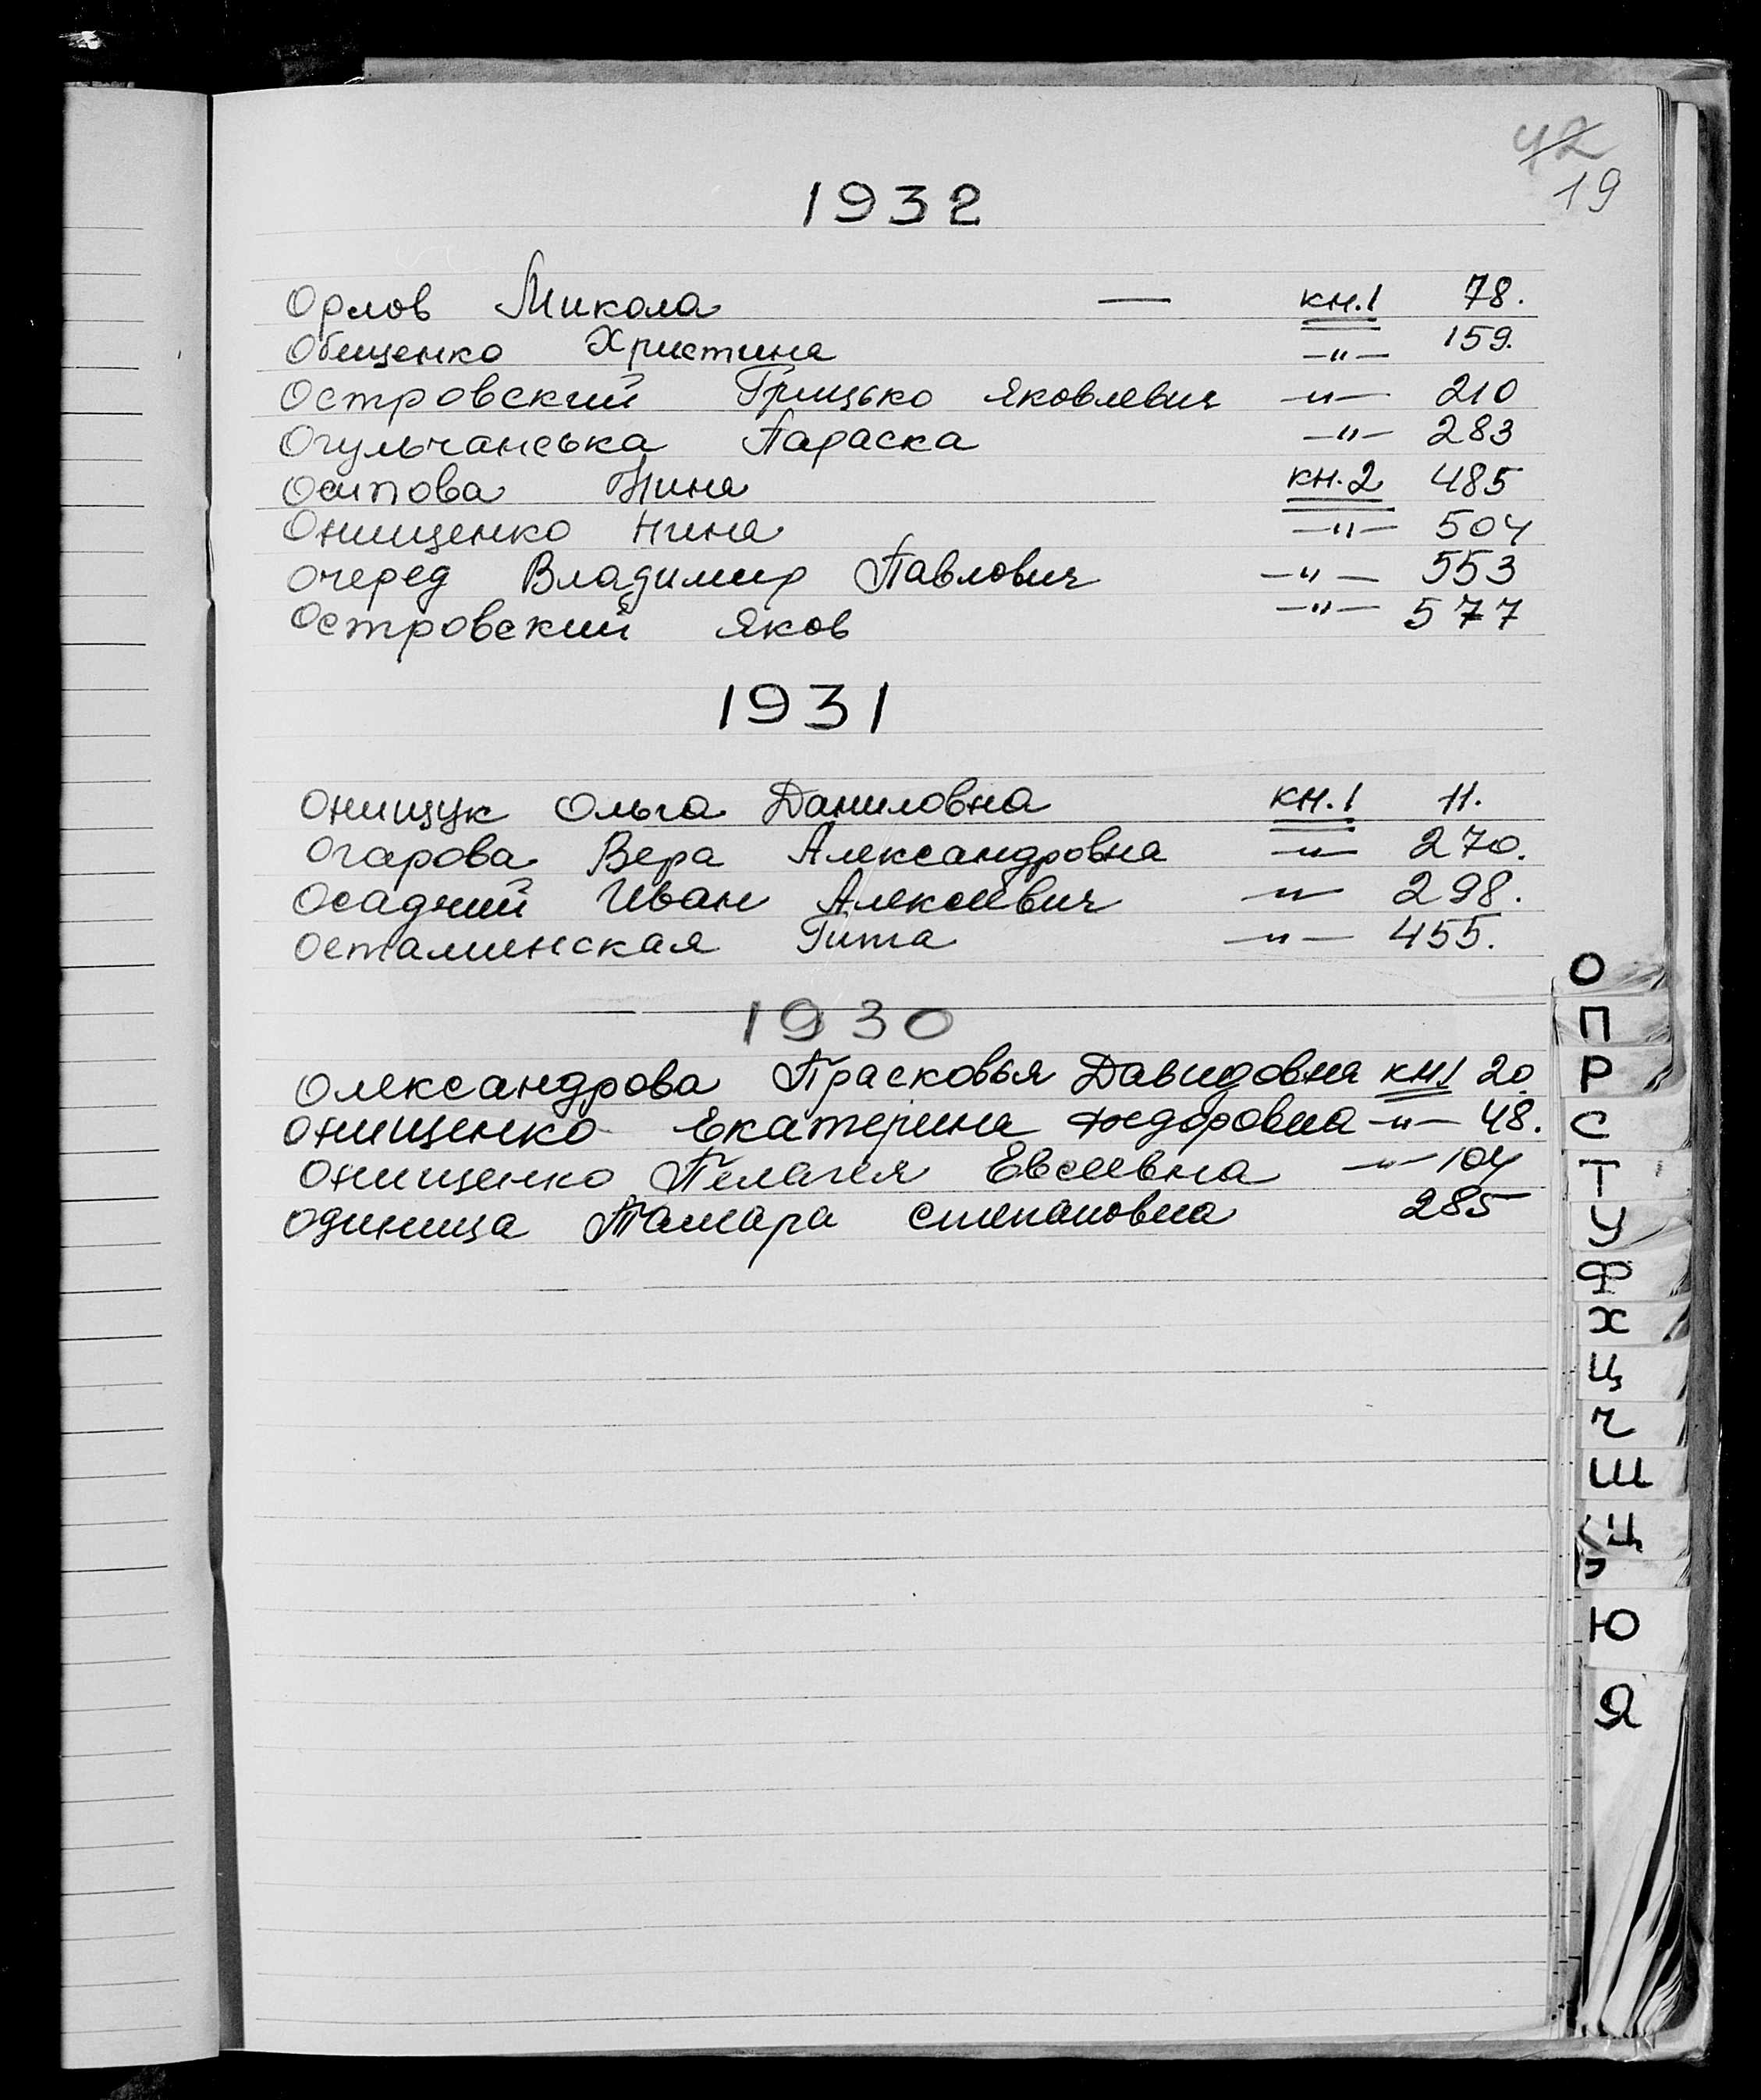 42
19
1932
Орлов Микола — кн.1 78.
Общенко Христина —"— 159.
Островский Грицько Яковлевич —"— 210
Огульчанська Параска —"— 283
Осипова Нина кн.2 485
Онищенко Нина —"— 504
Очеред Владимир Павлович —"— 553
Островский Яков —"— 577
1931
Онищук Ольга Даниловна кн.1 11.
Огарова Вера Александровна —"— 270.
Осадчий Иван Алексеевич —"— 298.
Осталинская Гита —"— 455.
1930
Олександрова Прасковья Давидовна кн.1 20
Онищенко Екатерина Федоровна —"— 48.
Онищенко Пелагея Евсеевна —"— 104
Одиница Тамара Степановна 285
О
П
Р
С
Т
У
Ф
Х
Ц
Ч
Ш
Щ
Ю
Я